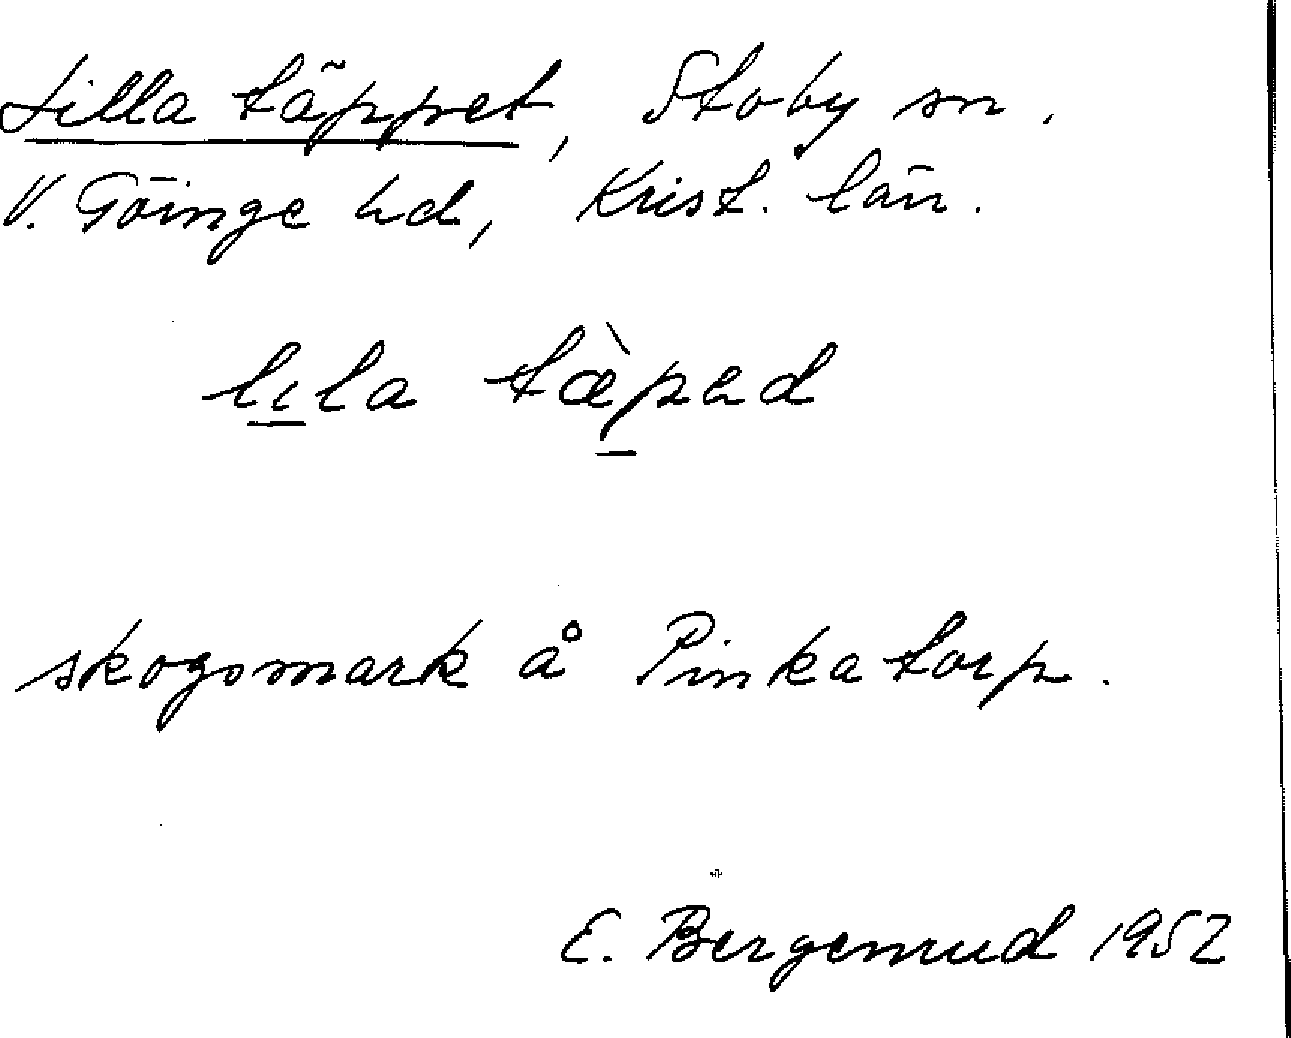 Lilla täppret, Stoby sn.
V. Göinge hd, Krist. län.
lıla tæ̀pəd
skogsmark å Pinkatorp.
E. Bergemrud 1952